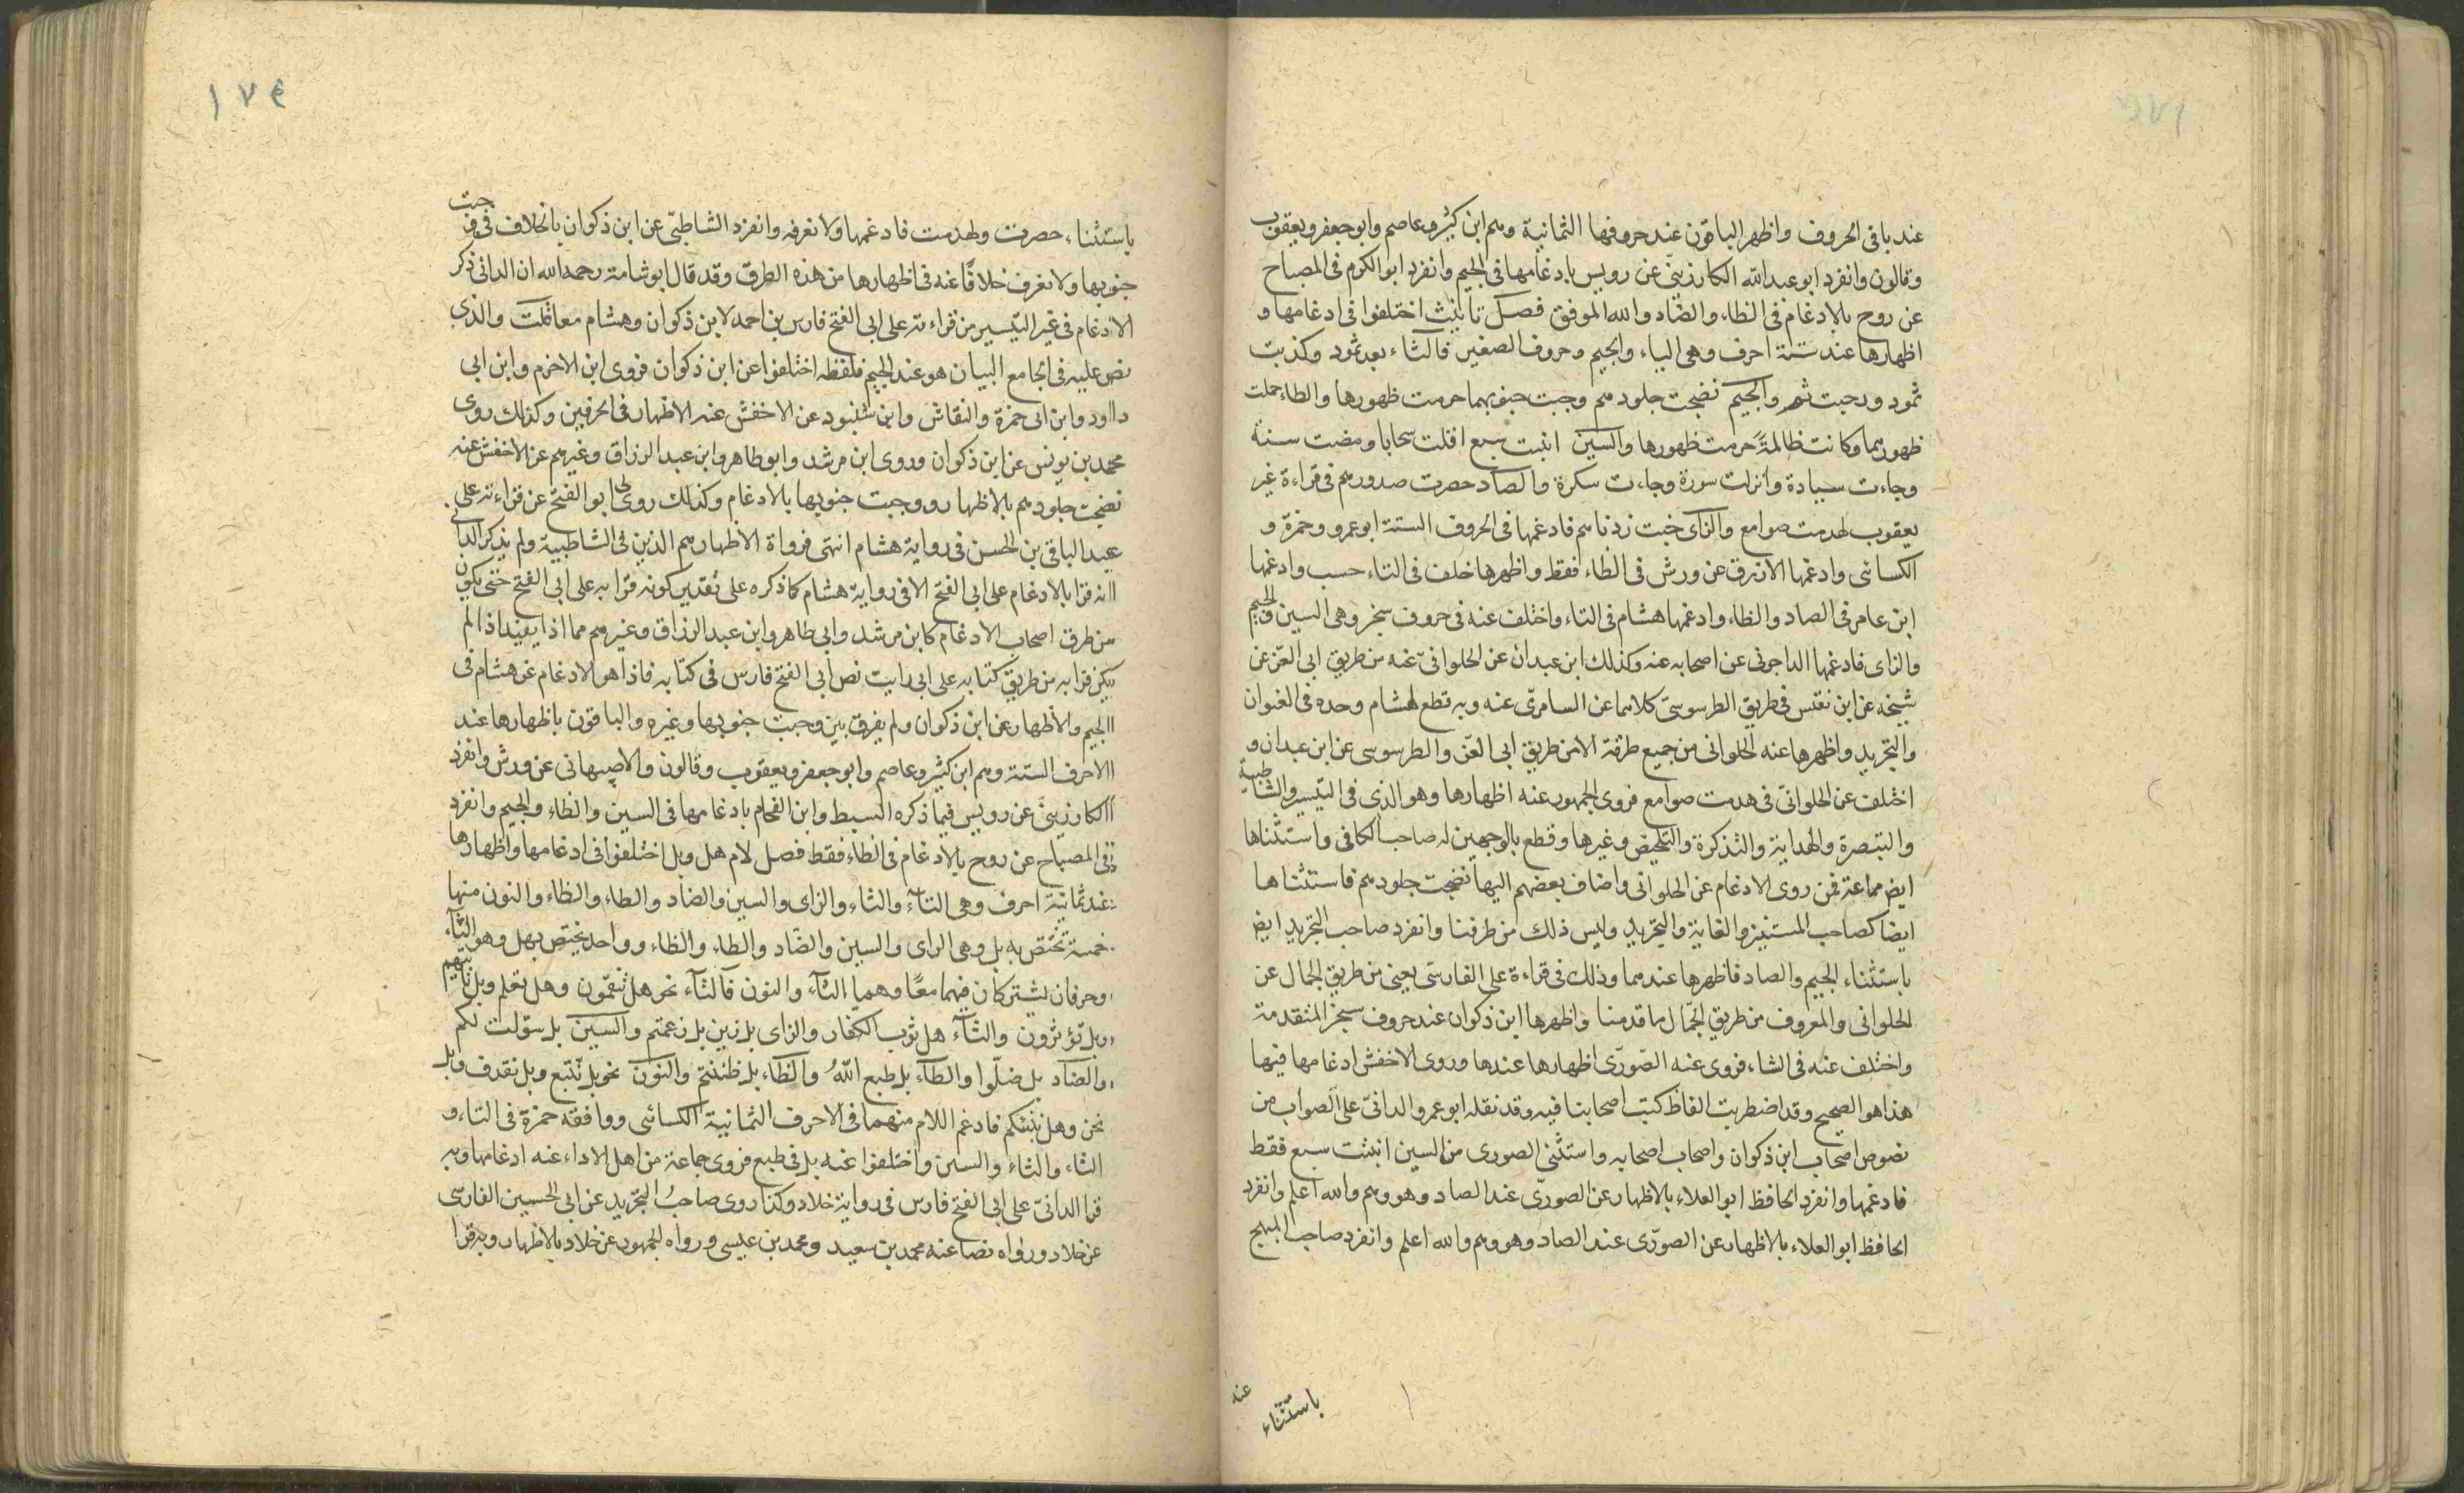 عند باقى الحروف واظهر الباقون عند حروفها الثمانية وهم ابن كثير وعاصم وابو جعفر ويعقوب
وقالون وانفرد ابو عبد الله الكارزينىّ عن رويس بادغامها فى الجيم وانفرد ابو الكرم فى المصباح
عن روح بالادغام فى الظاء والضاد والله الموفق فصل تا تانيث اختلفوا فى ادغامها و
اظهارها عند ستة احرف وهى الثاء والجيم وحروف الصفير فالثاء بعدت ثمود وكذبت
ثمود ورحبت ثم والجيم نضجت جلودهم وجبت جنوبهما حرمت ظهورها والظاء حملت
ظهورهما وكانت ظالمةً حرمت ظهورها والسين انبتت سبع اقلت سحابا ومضت سنة
وجاءت سيارة وانزلت سورة وجاءت سكرة والصاد حصرت صدورهم فى قراءة غير
يعقوب لهدمت صوامع والزاى خبت زدناهم فادغمها فى الحروف الستة ابو عمرو وحمزة و
الكسائى وادغمها الازرق عن ورش فى الظاء فقط واظهرها خلف فى الثاء حسب وادغمها
ابن عامر فى الصاد والظاء وادغمها هشام فى الثاء واختلف عنه فى حروف سجز وهى السين والجيم
والزاى فادغمها الداجونى عن اصحابه عنه وكذلك ابن عبدان عن الحلوانىّ عنه من طريق ابى العزّ عن
شيخه عن ابن نفيس فى طريق الطرسوسىّ كلاهما عن السامرىّ عنه وبه قطع لهشام وحده فى العنوان
والتجريد واظهرها عنه الحلوانى من جميع طرقه الا من طريق ابى العزّ والطرسوسى عن ابن عبدان و
اختلف عن الحلوانىّ فى هدمت صوامع فروى الجمهور عنه اظهارها وهو الذى فى التيسير والشاطبية
والتبصرة والهداية والتذكرة والتلخيص وغيرها وقطع بالوجهين له صاحب الكافى واستثناها
ايض جماعة ممن روى الادغام عن الحلوانى واضاف بعضهم اليها نضجت جلودهم فاستثناها
ايضا كصاحب المستنير والغاية والتجريد وليس ذلك من طرقنا وانفرد صاحب التجريد ايض
باستثناء الجيم والصاد فاظهرها عندهما وذلك فى قراءة على الفارسىّ يعنى من طريق الجمال عن
الحلوانى والمعروف من طريق الجمّال ما قدمنا واظهرها ابن ذكوان عند حروف سجز المتقدمة
واختلف عنه فى الثاء فروى عنه الصّورّى اظهارها عندها وروى الاخفش ادغامها فيها
هذا هو الصحيح وقد اضطربت الفاظ كتب اصحابنا فيه وقد نقله ابو عمرو الدانىّ على الصواب من
نصوص اصحاب ابن ذكوان واصحاب اصحابه واستثنى الصورى من السين انبتت سبع فقط
فادغمها وانفرد الحافظ ابو العلاء بالاظهار عن الصورّى عند الصاد وهو وهم والله اعلم وانفرد
الحافظ ابو العلاء بالاظهار عن الصورّى عند الصاد وهو وهم والله اعلم وانفرد صاحب المبهج
عنه
باستثناء
١٧٤
باستثناء حصرت ولهدمت فادغمها ولا نعرفه وانفرد الشاطبىّ عن ابن ذكوان بالخلاف فى وجبت
جنوبها ولا نعرف خلافًا عنه فى اظهارها من هذه الطرق وقد قال ابو شامة رحمه الله ان الدانى ذكر
الادغام فى غير التيسير من قراءته على ابى الفتح فارس بن احمد لابن ذكوان وهشام معا قلت والذى
نص عليه فى الجامع البيان هو عند الجيم فلفظه اختلفوا عن ابن ذكوان فروى ابن الاخرم وابن ابى
داود وابن ابى حمزة والنقاش وابن شنبود عن الاخفش عنه الاظهار فى الحرفين وكذلك روى
محمد بن يونس عن ابن ذكوان وروى ابن مرشد وابو طاهر وابن عبد الرزاق وغيرهم عن الاخفش عنه
نضجت جلودهم بالاظهار ووجبت جنوبها بالادغام وكذلك روى لى ابو الفتح عن قراءته على
عبد الباقى بن الحسن فى رواية هشام انتهى فرواة الاظهار هم الذين فى الشاطبية ولم يذكر الدانى
انه قرا بالادغام على ابى الفتح الا فى رواية هشام كما ذكره على تقدير كونه قرا به على ابى الفتح حتى يكون
من طرق اصحاب الادغام كابن مرشد وابى طاهر وابن عبد الرزاق وغيرهم مما اذا يفيد اذا لم
يكن قرا به من طريق كتابه على ابى رايت نص ابى الفتح فارس فى كتابه فاذا هو الادغام عن هشام فى
الجيم والاظهار عن ابن ذكوان ولم يفرق بين وجبت جنوبها وغيره والباقون باظهارها عند
الاحرف الستة وهم ابن كثير وعاصم وابو جعفر ويعقوب وقالون والاصبهانى عن ورش وانفرد
الكارزينىّ عن رويس فيما ذكره السبط وابن الفحام بادغامها فى السين والظاء والجيم وانفرد
فى المصباح عن روح بالادغام فى الظاء فقط فصل لام هل وبل اختلفوا فى ادغامها واظهارها
عند ثمانية احرف وهى التآء والثاء والزاى والسين والضاد والطاء والظاء والنون منها
خمسة تختص به بل وهى الزاى والسين والضاد والطاء والظاء وواحد يختص بهل وهو الثآء
وحرفان يشتركان فيهما معًا وهما التآء والنون فآلتآء نحو هل تنقمون وهل تعلم وبل تاتيهم
وبل تؤثرون والثآء هل ثوب الكفار والزاى بل زين بل زعمتم والسين بل سوّلت لكم
والضاد بل ضلّوا والطآء بل طبع اللّهُ والظاء بل ظننتم والنون نحو بل نتّبع وبل نقذف وبل
نحن وهل ننبئكم فادغم اللام منهما فى الاحرف الثمانية الكسائى ووافقه حمزة فى التاء و
الثاء والثاء والسين واختلفوا عنه بل فى طبع فروى جماعة من اهل الاداء عنه ادغامها وبه
قرا الدانىّ على ابى الفتح فارس فى رواية خلاد وكذا روى صاحبُ التجريد عن ابى الحسين الفارسّى
عن خلاد ورواه نصا عنه محمد بن سعيد ومحمد بن عيسى ورواه الجمهور عن خلاد بالاظهار وبه قرا